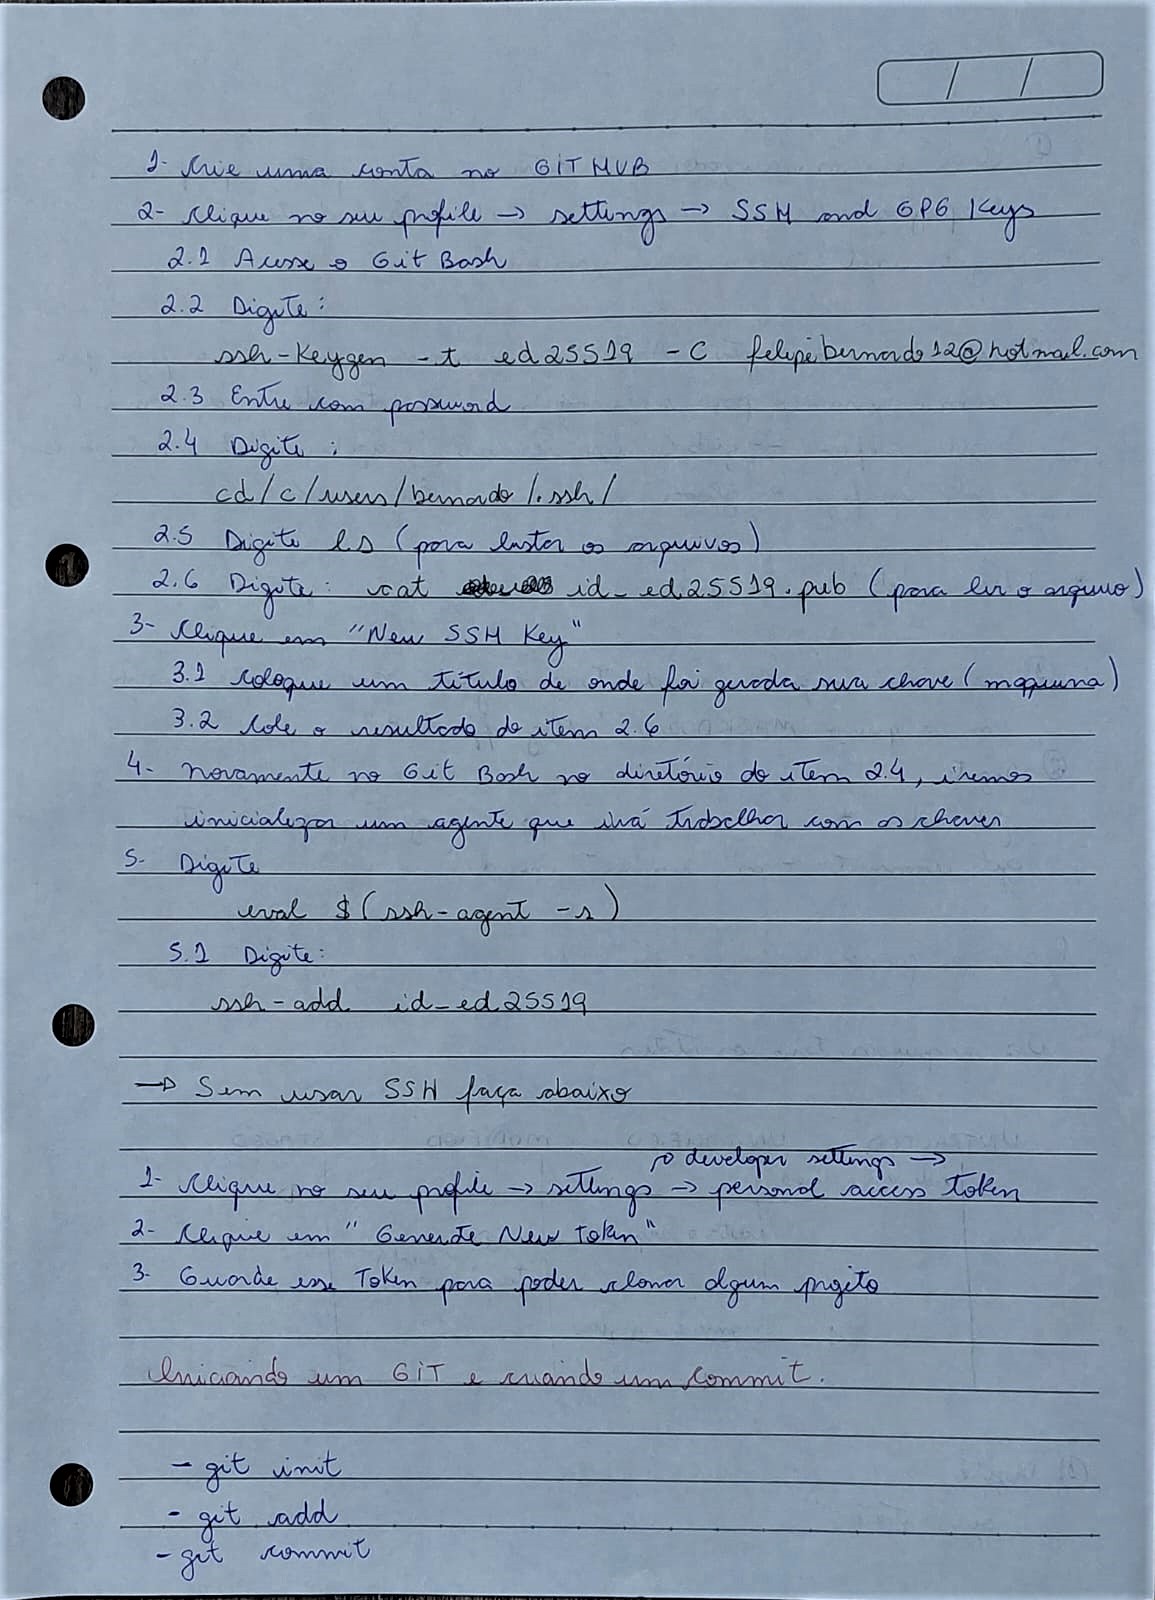 1- Crie uma conta no GITHUB
2- Clique no seu profile → settings → SSH and GPG Keys
2.1 Acesse o Git Bash
2.2 Digite:
ssh-Keygen -t ed25519 -C felipebernardo12@hotmail.com
2.3 Entre com password
2.4 Digite:
cd/c/users/bernardo/.ssh/
2.5 Digite ls (para listar os arquivos)
2.6 Digite: cat id_ed25519.pub (para ler o arquivo)
3- Clique em "New SSH Key"
3.1 Coloque um título de onde foi gerada sua chave (maquina)
3.2 Cole o resultado do item 2.6
4- novamente no Git Bash no diretório do item 2.4, iremos
inicializar um agente que irá trabalhar com as chaves
5- Digite
eval $(ssh-agent -s)
5.1 Digite:
ssh-add id_ed25519
→ Sem usar SSH faça abaixo
developer settings →
1- Clique no seu profile → settings → personal access token
2- Clique em "Generate New token"
3- Guarde esse Token para poder clonar algum projeto
Iniciando um GIT e criando um commit.
- git init
- git add
- git commit